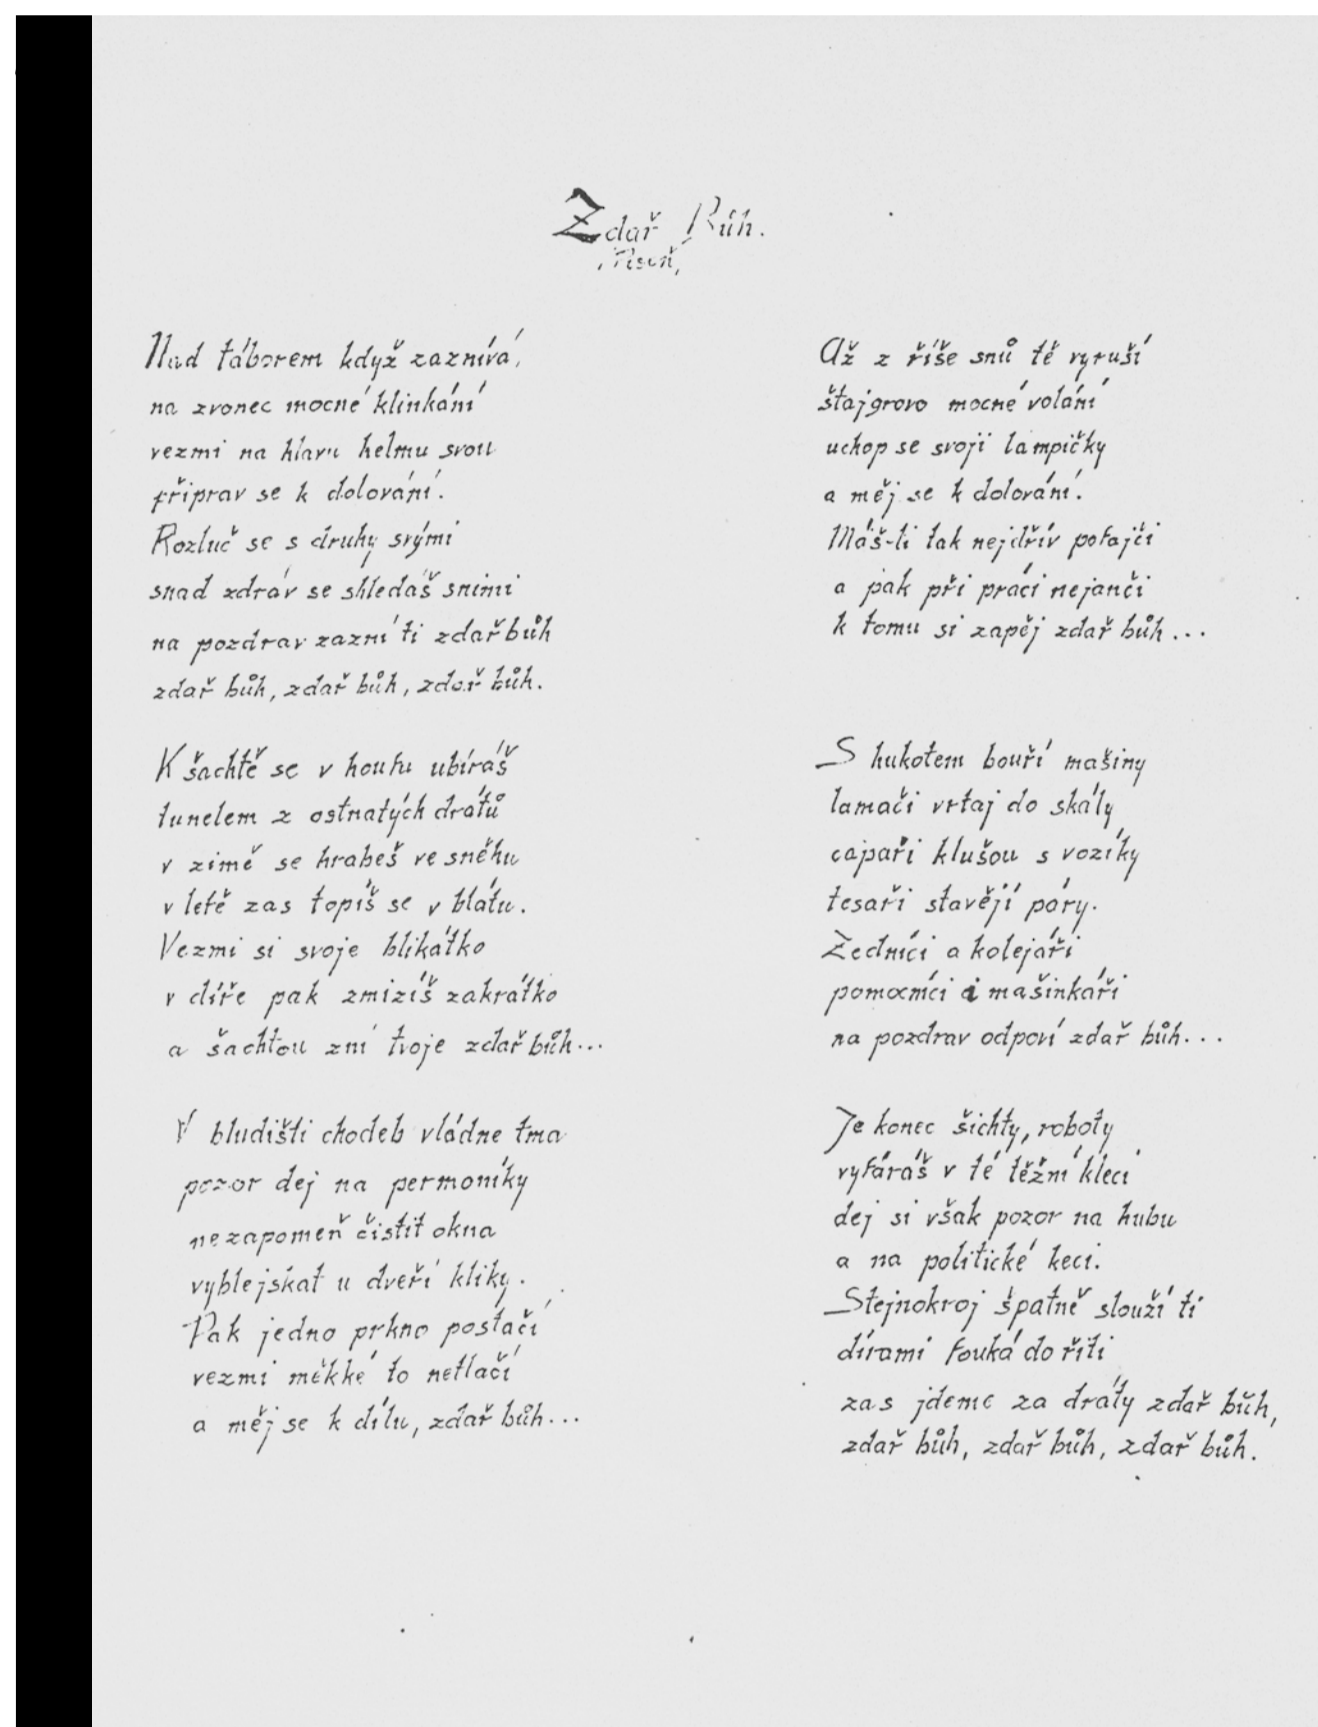 Zdař Bůh.
Píseň,
Nad táborem když zaznívá,
na zvonec mocné klinkání
vezmi na hlavu helmu svou
připrav se k dolování.
Rozluč se s druhy svými
snad zdráv se shledáš snimi
na pozdrav zazní ti zdař bůh
zdař bůh, zdař bůh, zdař bůh.
K šachtě se v houfu ubíráš
tunelem z ostnatých drátů
v zimě se hrabeš ve sněhu
v letě zas topíš se v blátu.
Vezmi si svoje blikátko
v díře pak zmizíš zakrátko
a šachtou zní tvoje zdař bůh...
V bludišti chodeb vládne tma
pozor dej na permoníky
nezapomeň čistit okna
vyblejskat u dveří kliky.
Pak jedno prkno postačí
vezmi měkké to netlačí
a měj se k dílu, zdař bůh...
Až z říše snů tě vyruší
štajgrovo mocné volání
uchop se svojí lampičky
a měj se k dolování.
Máš-li tak nejdřív pofajči
a pak při práci nejanči
k tomu si zapěj zdař bůh...
S hukotem bouří mašiny
lamači vrtaj do skály
capaři klušou s vozíky
tesaři stavějí páry.
Zedníci a kolejáři
pomocníci i mašinkáři
na pozdrav odpoví zdař bůh...
Je konec šichty, roboty
vyfáráš v té těžní kleci
dej si však pozor na hubu
a na politické keci.
Stejnokroj špatně slouží ti
dírami fouká do řiti
zas jdeme za dráty zdař bůh,
zdař bůh, zdař bůh, zdař bůh.